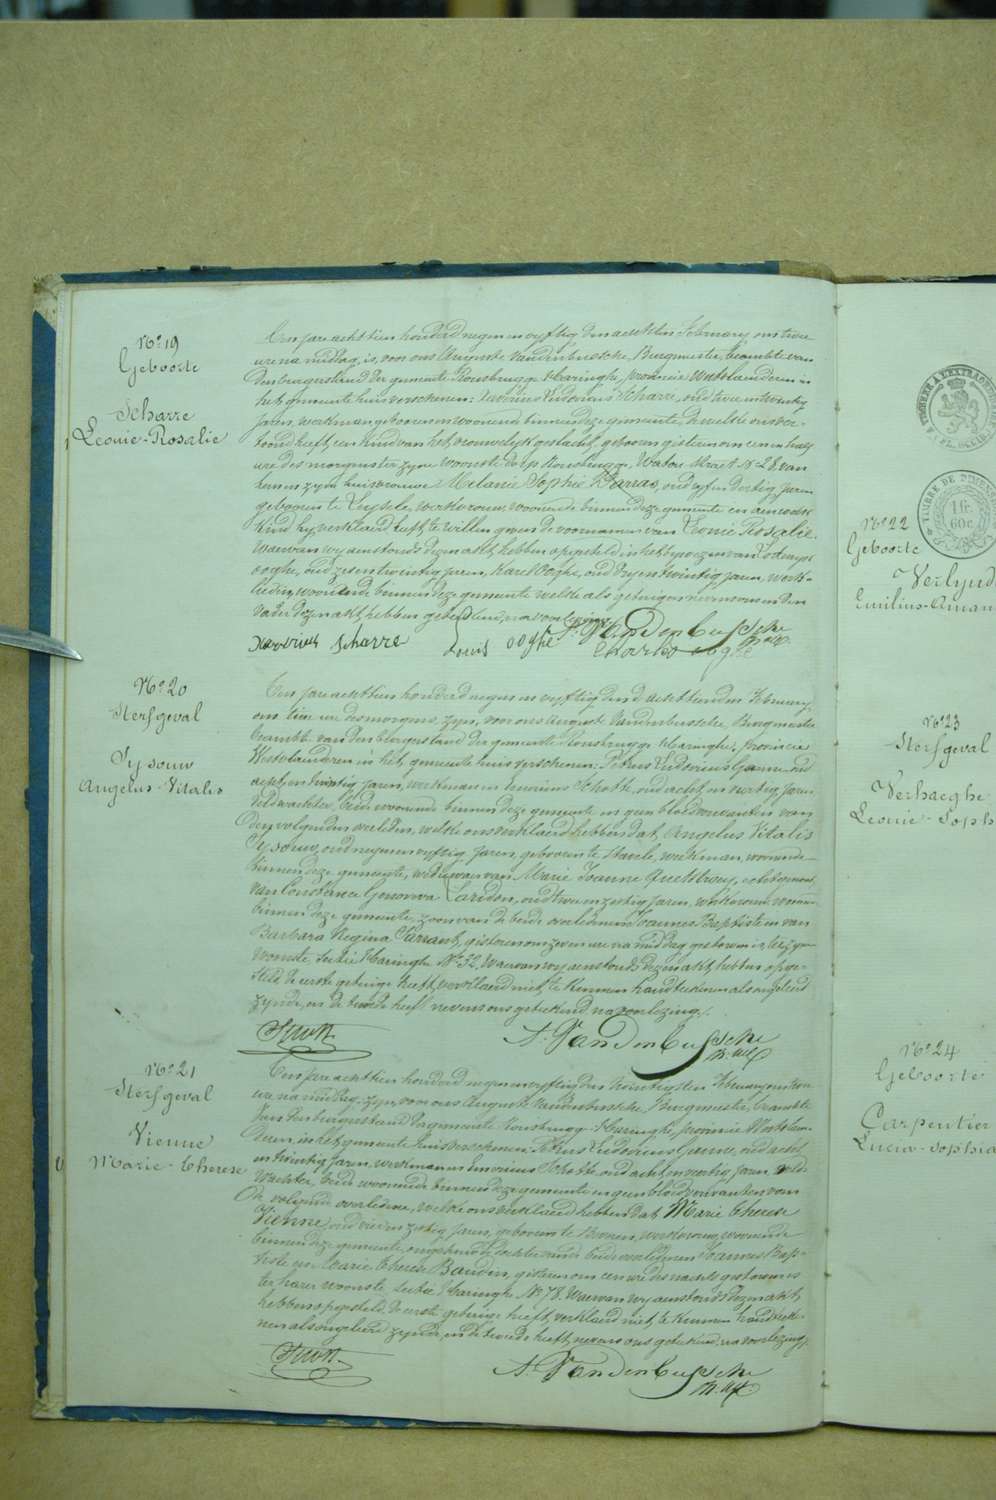 No 19
Geboorte
Scharre
Leonie-Rosalie
Ten jare achttien honderd negen en vyftig den achtsten February, om twee
ure na middag, is, voor ons Auguste Vandenbussche, Burgmeester, beambte van
den burgerstand der gemeente Rousbrugge-Haringhe, provincie Westvlaenderen in
het gemeente huis verschenen: Xaverius Ludovicus Scharre, oud twee en twintig
jaren, werkman geboren en woonende binnen deze gemeente, de welke ons ver-
toond heeft, een kind van het vrouwelyk geslacht, geboren gisteren om een en half
ure des morgens ter zyne woonste Rousbrugge, Watou Straet No 28 van
hem en zyne huisvrouwe Melanie Sophie Warras, oud vyf en dertig jaren
geboren te Leysele, werkvrouw woonende binnen deze gemeente en aen welk
kind hy verklaerd heeft te willen geven de voornamen van Leonie Rosalie.
Waervan wy aenstonds dezen akt hebben opgesteld, in het bywezen van Lodewyk
Ooghe, oud zes en twintig jaren, Karel Ooghe, oud dry en twintig jaren, werk-
lieden, woonende binnen deze gemeente welke als getuigen nevens ons en den
vader dezen akt hebben geteekend, na voorlezing.
Xaverius Scharre Louis ooghe A. Vandenbussche
Charles ooghe
No 20
Sterfgeval
Sysouw
Angelus-Vitalis
Ten jare achttien honderd negen en vyftig den achttienden February,
om tien ure des morgens, zyn, voor ons August Vandenbussche Burgmeester
beambte van den burgerstand der gemeente Rousbrugge Haringhe, provincie
Westvlaenderen in het gemeente huis verschenen: Petrus Ludovicus Ganne oud
acht en twintig jaren, werkman en Livinus Schotte, oud acht en veertig jaren
veldwachter, beide woonende binnen deze gemeente en geen bloedverwanten van
den volgenden overleden, welke ons verklaerd hebben dat, Angelus Vitalis
Sysouw, oud negen en vyftig jaren, geboren te Stavele, werkman, woonende
binnen deze gemeente, weduwaer van Marie Joanne Queetstroey, echtgenoot
van Constance Genoveva Laridon, oud twee en zestig jaren, werkvrouw woonende
binnen deze gemeente, zoon van de beide overledenen Joannes Baptiste en van
Barbara Regina Sarrant, gisteren om zeven ure na middag gestorven is, te zyner
woonste, Sectie Haringhe No 32. Waervan wy aenstonds dezen akt hebben opge-
steld. De eerste getuige heeft verklaerd niet te kunnen handteekenen als ongeleerd
zynde, en de tweede heeft nevens ons geteekend, na voorlezing.
A. Vandenbussche
No 21
Sterfgeval
Vienne
Marie-Therese
Ten jare achttien honderd negen en vyftig den twintigsten February om twee
ure na middag, zyn, voor ons Auguste Vandenbussche, Burgmeester, beambte
van den burgerstand der gemeente Rousbrugge-Haringhe, provincie Westvlaen-
deren, in het gemeente huis verschenen: Petrus Ludovicus Ganne, oud acht
en twintig jaren, werkman en Livinus Schotte, oud acht en veertig jaren veld-
wachter, beide woonende binnen deze gemeente en geen bloedverwanten van
de volgende overledene, welke ons verklaerd hebben dat Marie Therese
Vienne, oud vier en zestig jaren, geboren te Proven, werkvrouw, woonende
binnen deze gemeente, ongehuwde dochter van de beide overledenen Joannes Bap-
tiste en Marie Therese Bauden, gisteren om een ure des nachts gestorven is
ter harer woonste, Sectie Haringhe No 78. Waervan wy aenstonds dezen akt
hebben opgesteld. De eerste getuige heeft verklaerd niet te kunnen handteeke-
nen als ongeleerd zynde, en de tweede heeft, nevens ons geteekend, na voorlezing.
A. Vandenbussche
TIMBRE DE DIMENSION
1 fr.
60c.
No 22
Geboorte
Verlynd
Emilius-Aman
No 23
Sterfgeval
Verhaeghe
Leonie-Soph
No 24
Geboorte
Carpentier
Lucia-Sophia